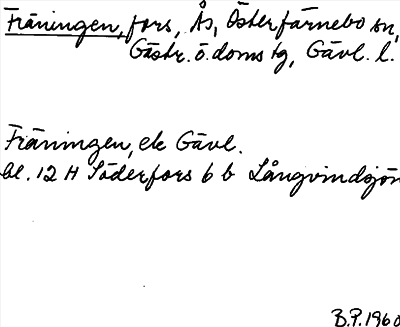 Fräningen, fors, Ås, Österfärnebo sn,
Gästr. ö. doms tg, Gävl. l.
Fräningen, ek Gävl.
bl. 12 H Söderfors 6 b Långvindsjön
B.P. 1960